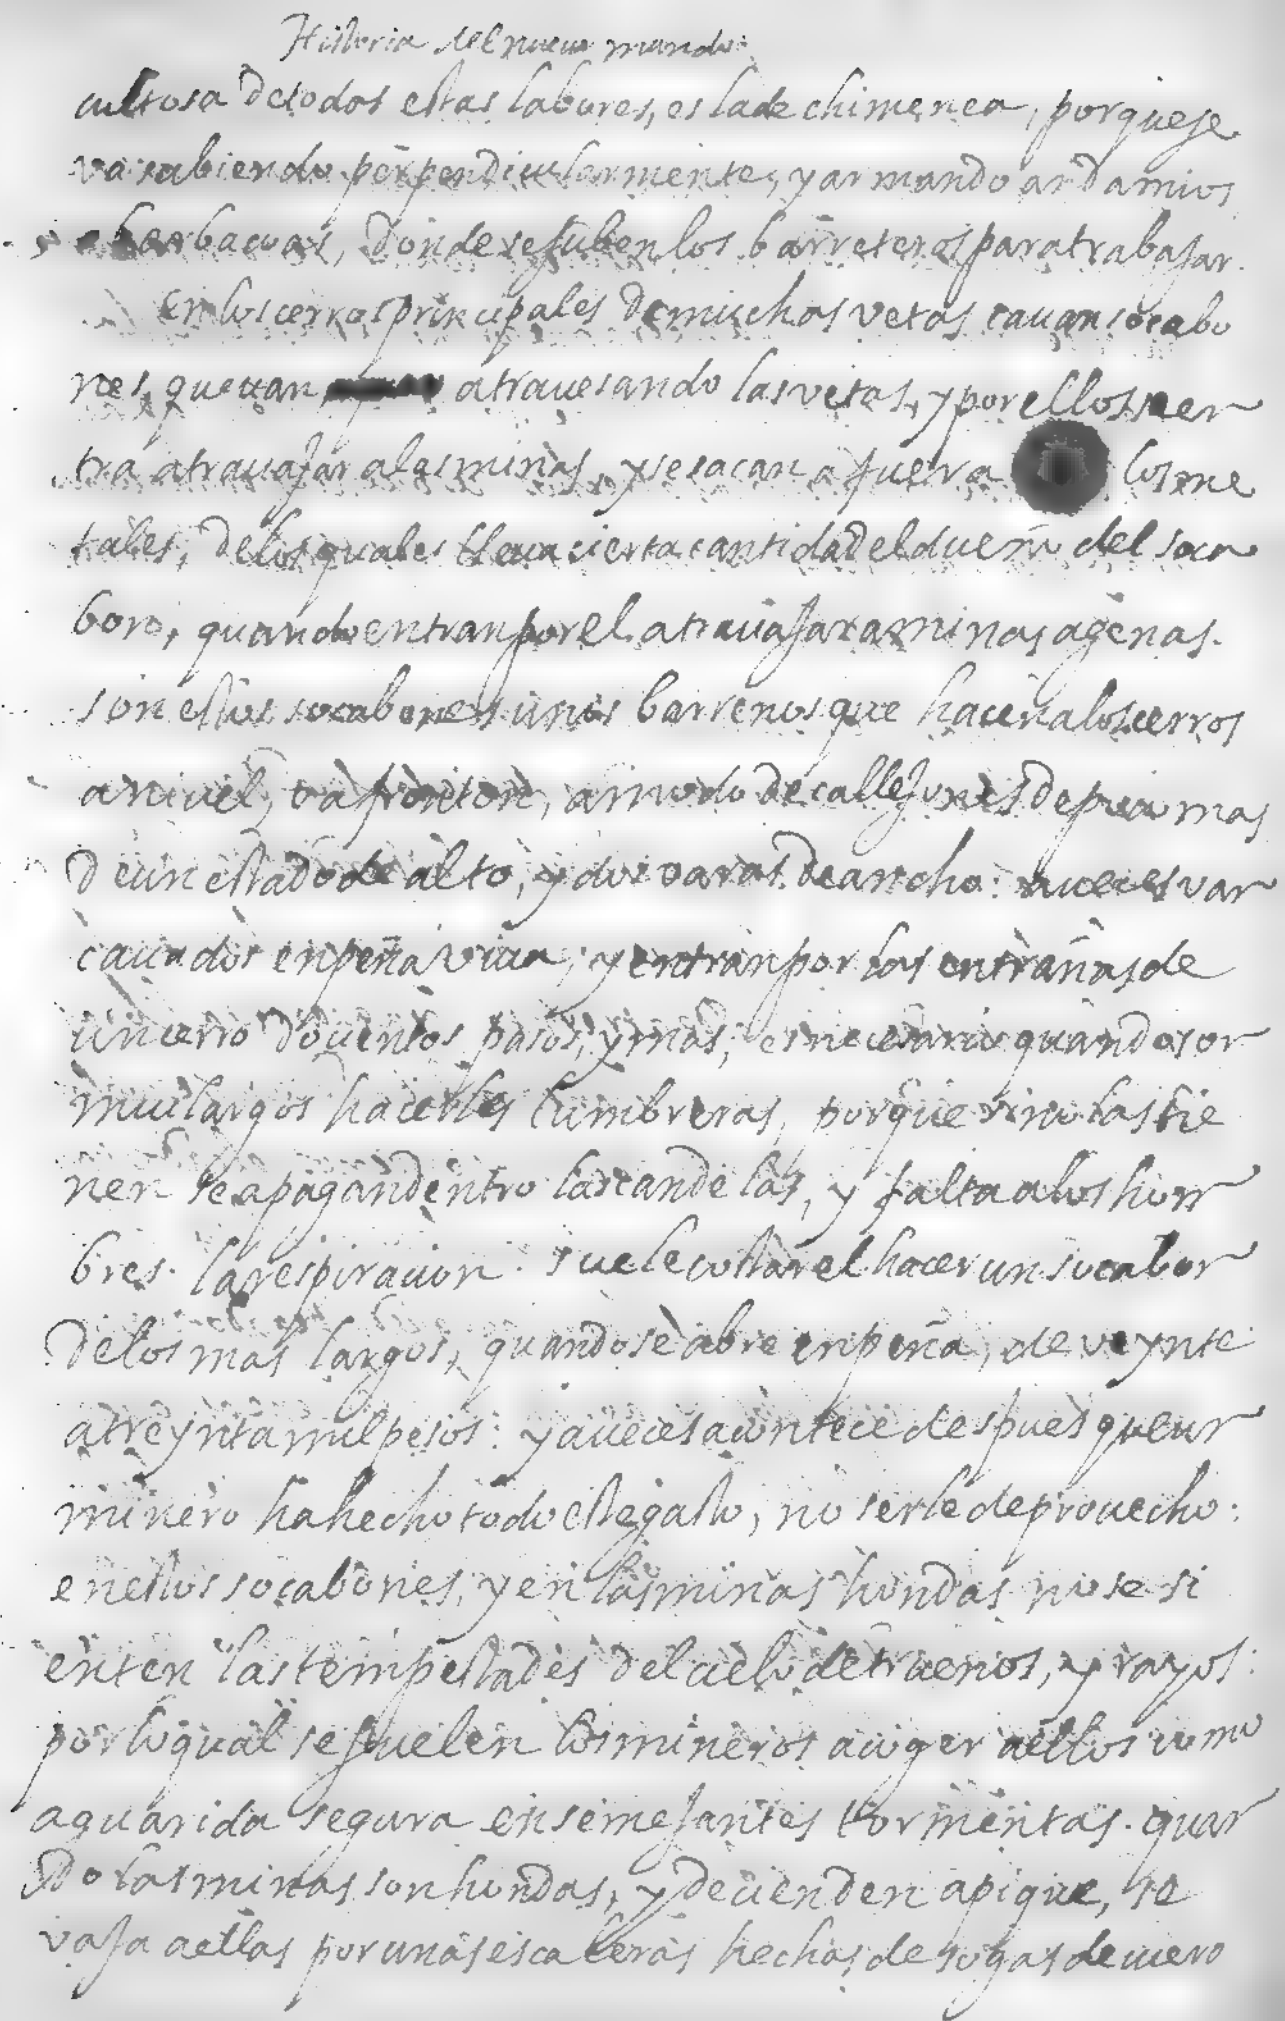 Historia del nueuo mundo.
cultosa de todos estas labores, es la de chimenea, porque se
va subiendo perpendicularmente, y armando andamios
barbacoas, donde se suben los barreteros para trabajar.
en los cerros principales de muchos vetas cauan socabo
nes, que uan atrauesando las vetas, y por ellos se en
tra a trauajar a las minas, y se sacan a fuera los me
tales, de los quales lleua cierta cantidad el dueño del soca
bon, quando entran por el a trauajar a minas agenas.
son estos socabones unos barrenos que hacen a los cerros
a niuel, o a fronton, a modo de callejones de poco mas
de un estado de alto, y dos varas de ancho: a ueces van
cauados en peña viua, y entran por las entrañas de
un cerro docientos pasos, y mas, es necesario quando son
mui largos hacerles lumbreras, porque si no las tie
nen se apagan dentro las candelas, y falta a los hom
bres la respiracion. suele costar el hacer un socabon
de los mas largos, quando se abre en peña, de veynte
a treynta mil pesos: y a ueces acontece despues que un
minero ha hecho todo este gasto, no serle de prouecho:
en estos socabones, y en las minas hondas no se si
enten las tempestades del cielo de truenos, y rayos:
por lo qual se suelen los mineros acoger a ellos como
a guarida segura en semejantes tormentas. quan
do las minas son hondas, y decienden a pique, se
vaja a ellas por unas escaleras hechas de sogas de cuero